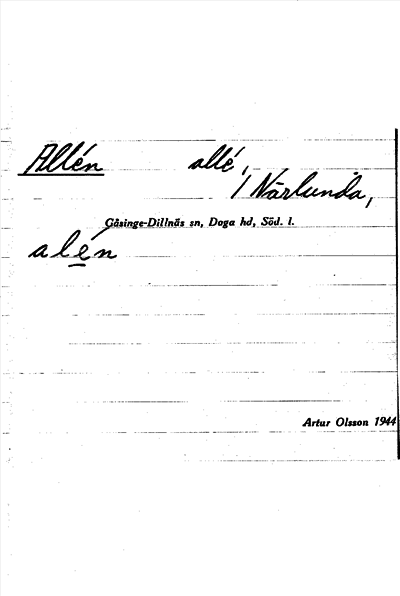 Allén allé,
/ Närlunda,
Gåsinge-Dillnäs sn, Doga hd, Söd. l.
alén
Artur Olsson 1944